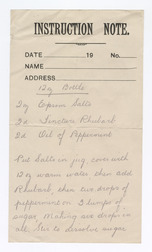 INSTRUCTION NOTE.
DATE 19 No.
NAME
ADDRESS
12oz Bottle
2oz Epsom Salts
2d Tincture Rhubarb
2d Oil of Peppermint
Put Salts in jug cover with
12oz warm water then add
Rhubarb, then two drops of
peppermint on 3 lumps of
sugar, making six drops in
all. Stir to dissolve sugar